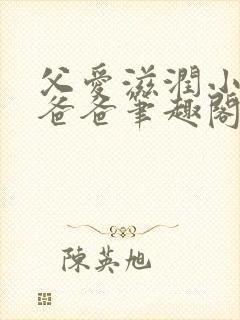 父愛滋潤小
爸爸筆趣閣
陳英旭